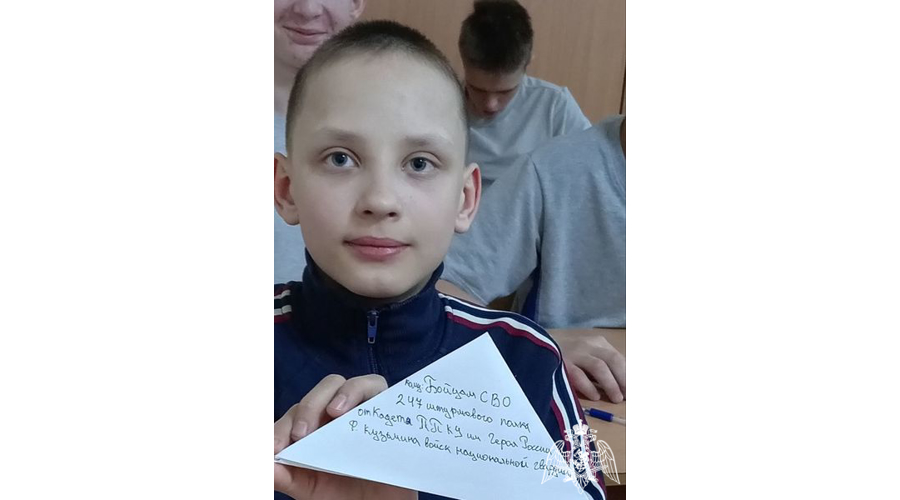 кому: Бойцам СВО
247 штурмового полка
от Кадета ППКУ им Героя России
Ф. Кузьмина войск национальной гвардии